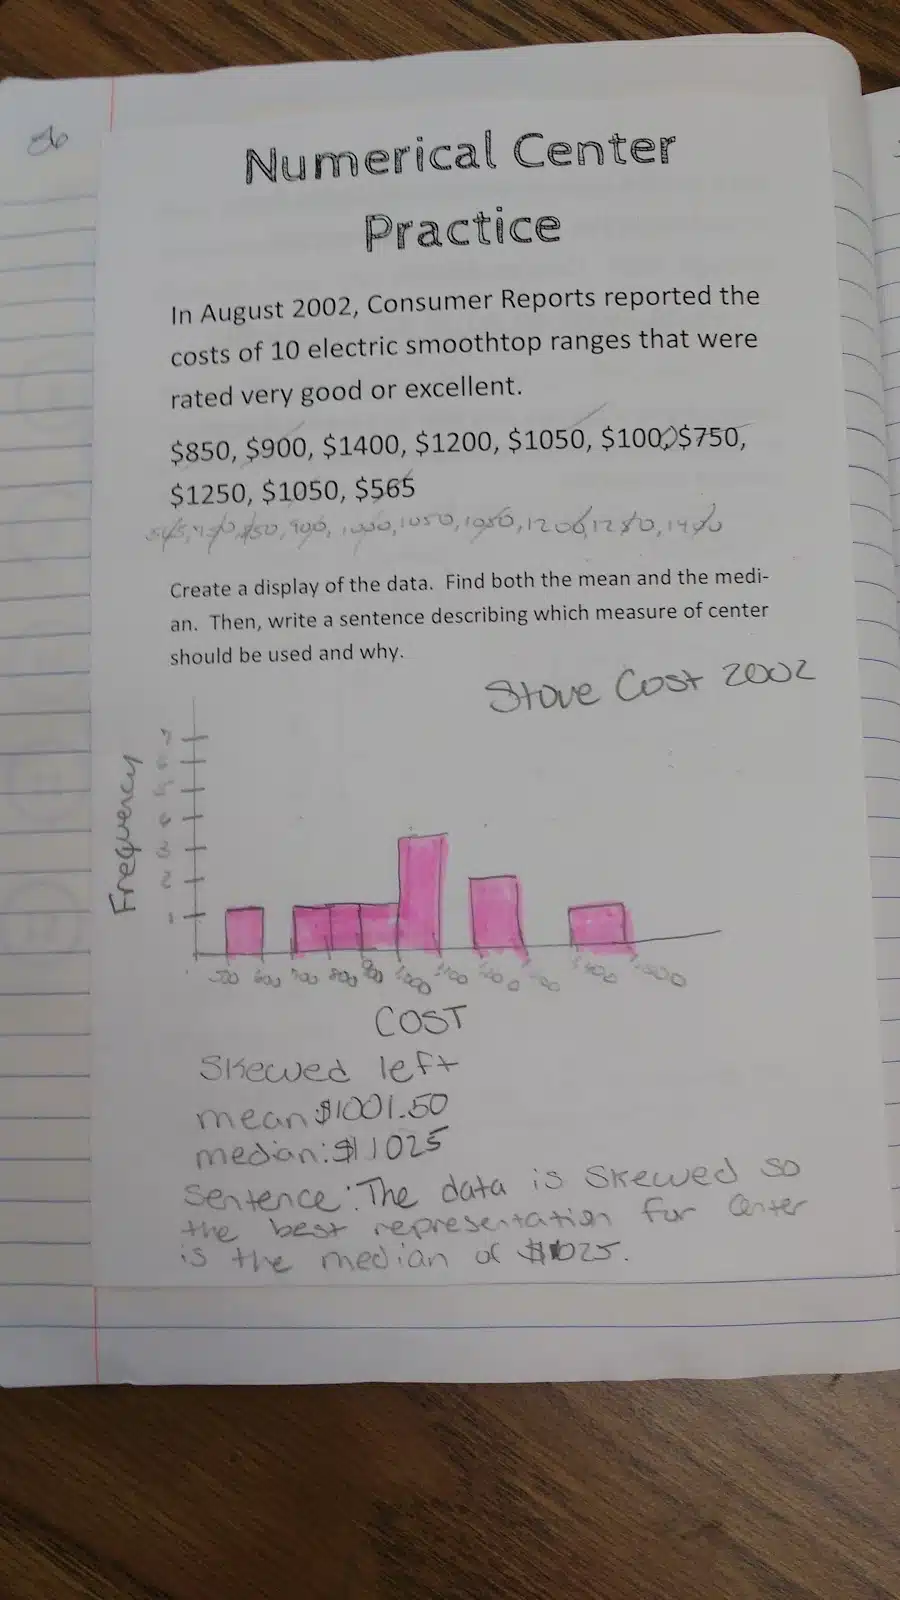 Numerical Center
Practice
In August 2002, Consumer Reports reported the
costs of 10 electric smoothtop ranges that were
rated very good or excellent.
$850, $900, $1400, $1200, $1050, $1000, $750,
$1250, $1050, $565
565, 750, 850, 900, 1000, 1050, 1050, 1200, 1250, 1400
Create a display of the data. Find both the mean and the medi-
an. Then, write a sentence describing which measure of center
should be used and why.
Stove Cost 2002
Frequency
7
6
5
4
3
2
1
500 600 700 800 900 1000 1100
COST
Skewed left
mean:$1001.50
median:$1025
Sentence: The data is skewed so
the best representation for center
is the median of $1025.